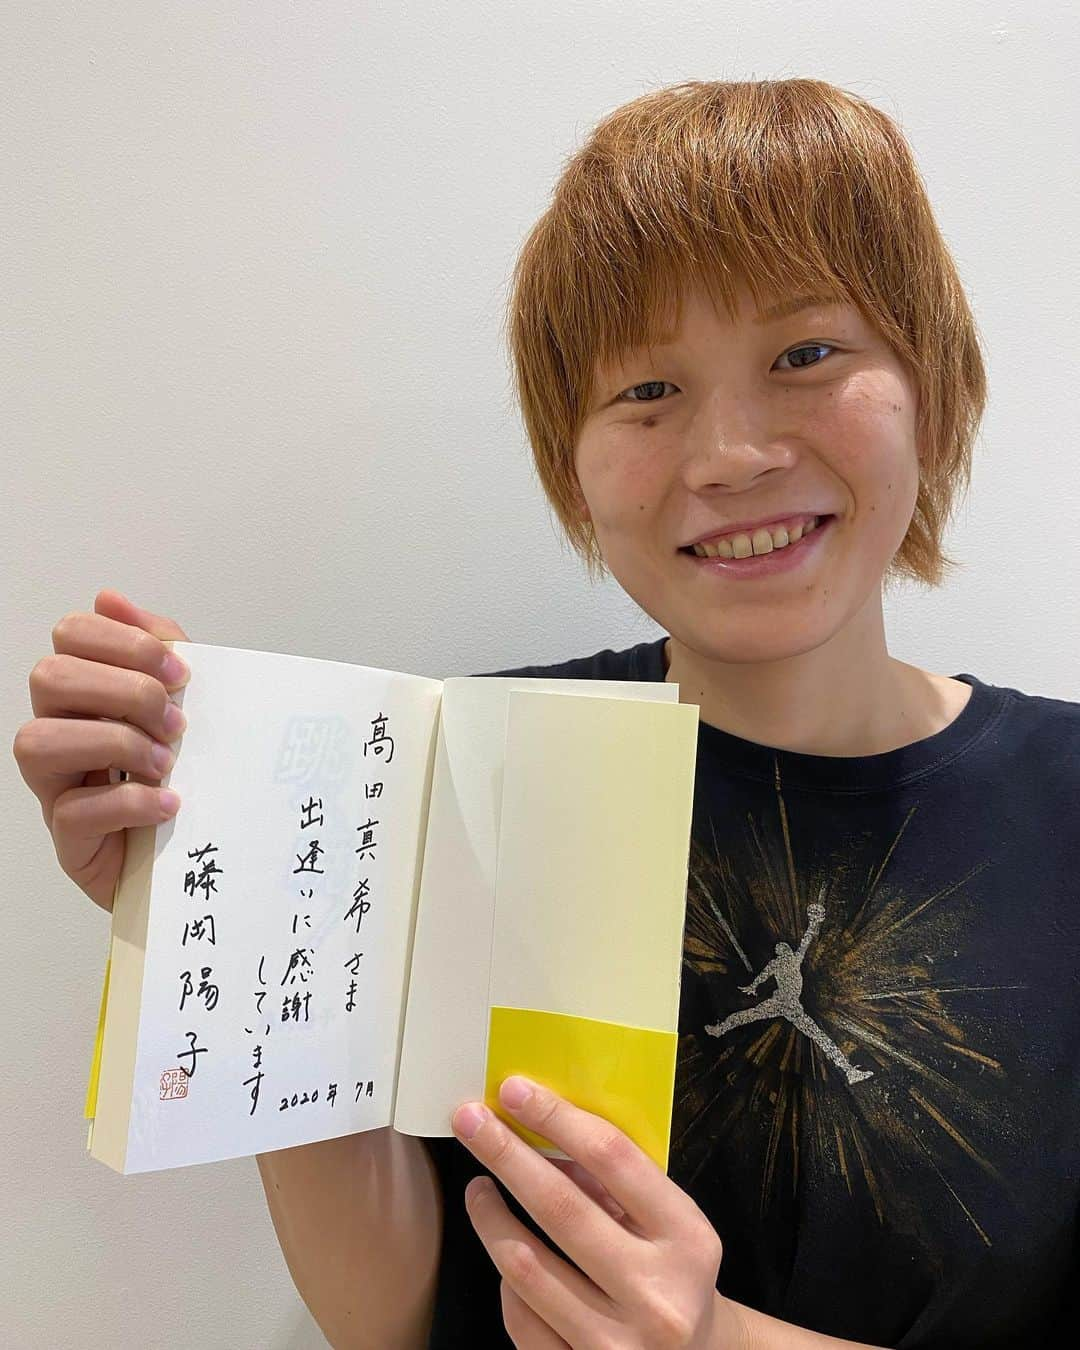 髙田真希さま
出逢いに感謝
しています
2020年 7月
藤岡陽子